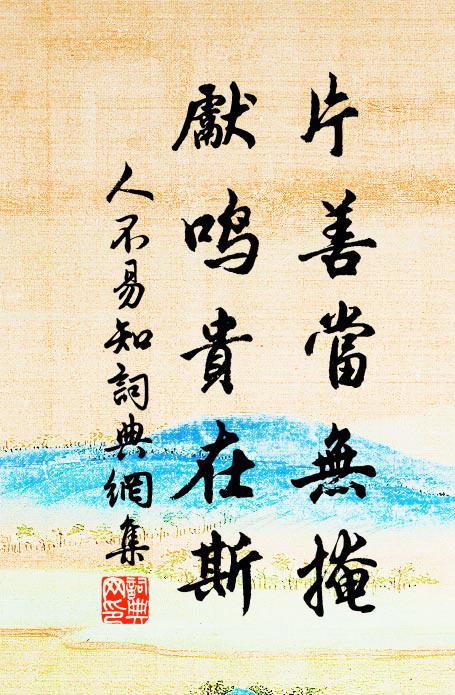 片善當無掩
獻鳴貴在斯
人不易知詞典網集
詞典